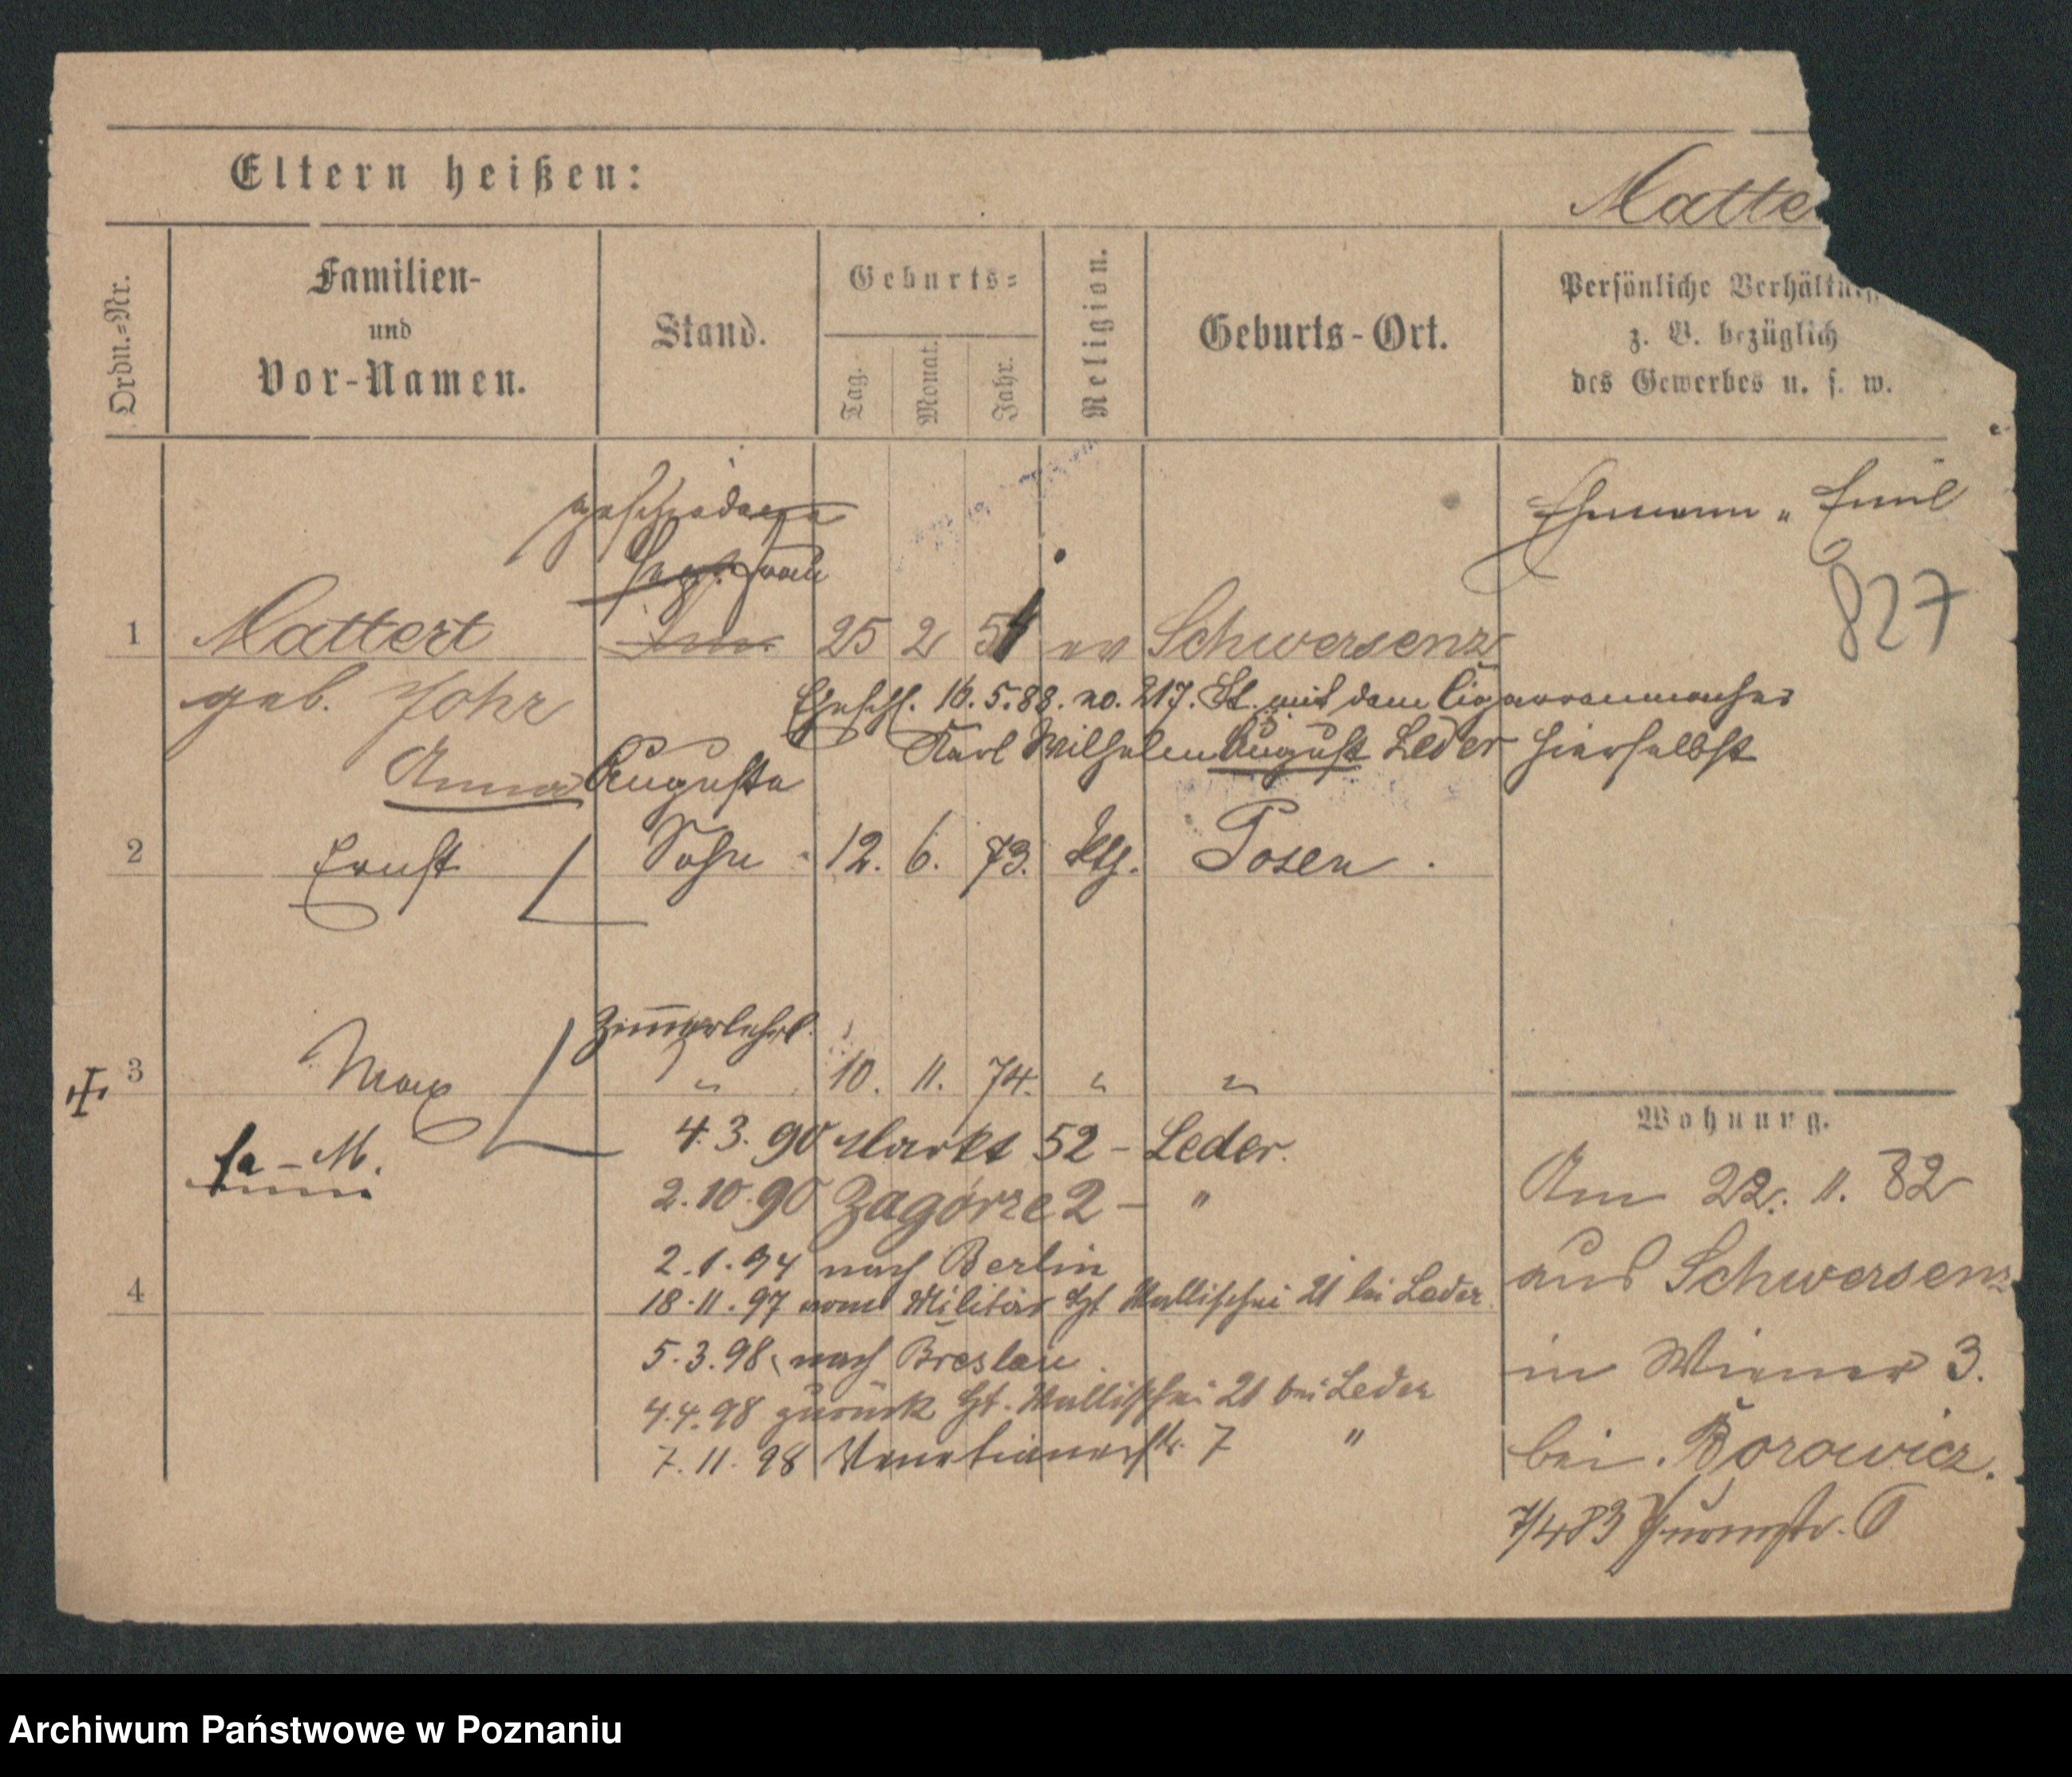 Eltern heißen:
Matte
Ordn.=Nr.
Familien-
und
Vor-Namen.
Stand.
Geburts=
Tag.
Monat.
Jahr.
Religion.
Geburts-Ort.
Persönliche Verhältn
z. B. bezüglich
des Gewerbes u. s. w.
geschiedene
Ehemann Emil
frau
827
1 Mattert 25 2 54 ev Schwersenz
geb. Johr
Eheschl. 16.5.88. no. 217. St. mit dem Cigarrenmacher
Karl Wilhelm August Leder hierselbst
Anna Auguste
2 Ernst Sohn 12. 6. 73. kth. Posen.
Zimmerlehrl.
3 Max " 10. 11. 74. " "
4.3.90 Markt 52 - Leder.
M.
2.10.90 Zagórze 2 - "
2.1.94 nach Berlin
4
18.11.97 vom Militär Wallischei 21 bei Leder
5.3.98 nach Breslau.
4.4.98 zurück Wallischei 21 bei Leder
7.11.98 Venetianerstr. 7 "
Wohnung.
Am 22. 11. 82
aus Schwersenz
in Wiener 3.
bei Borowicz.
7/4 83 6
Archiwum Państwowe w Poznaniu